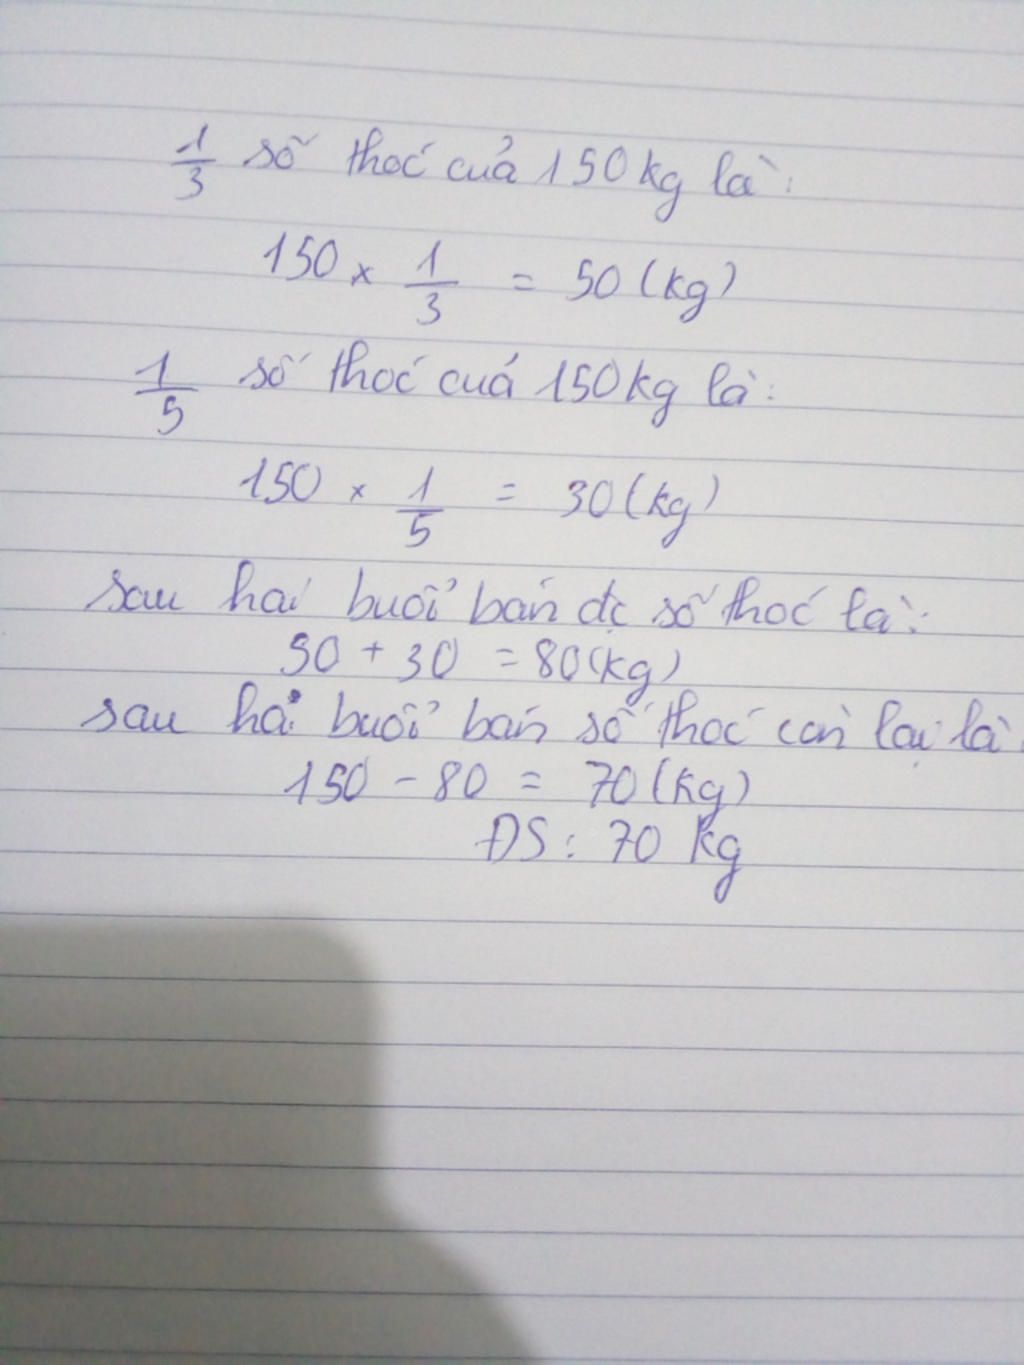 1/3 số thóc của 150kg là:
150 x 1/3 = 50 (kg)
1/5 số thóc của 150kg là:
150 x 1/5 = 30 (kg)
sau hai buổi bán đc số thóc là:
50 + 30 = 80 (kg)
sau hai buổi bán số thóc còn lại là:
150 - 80 = 70 (kg)
ĐS: 70 kg